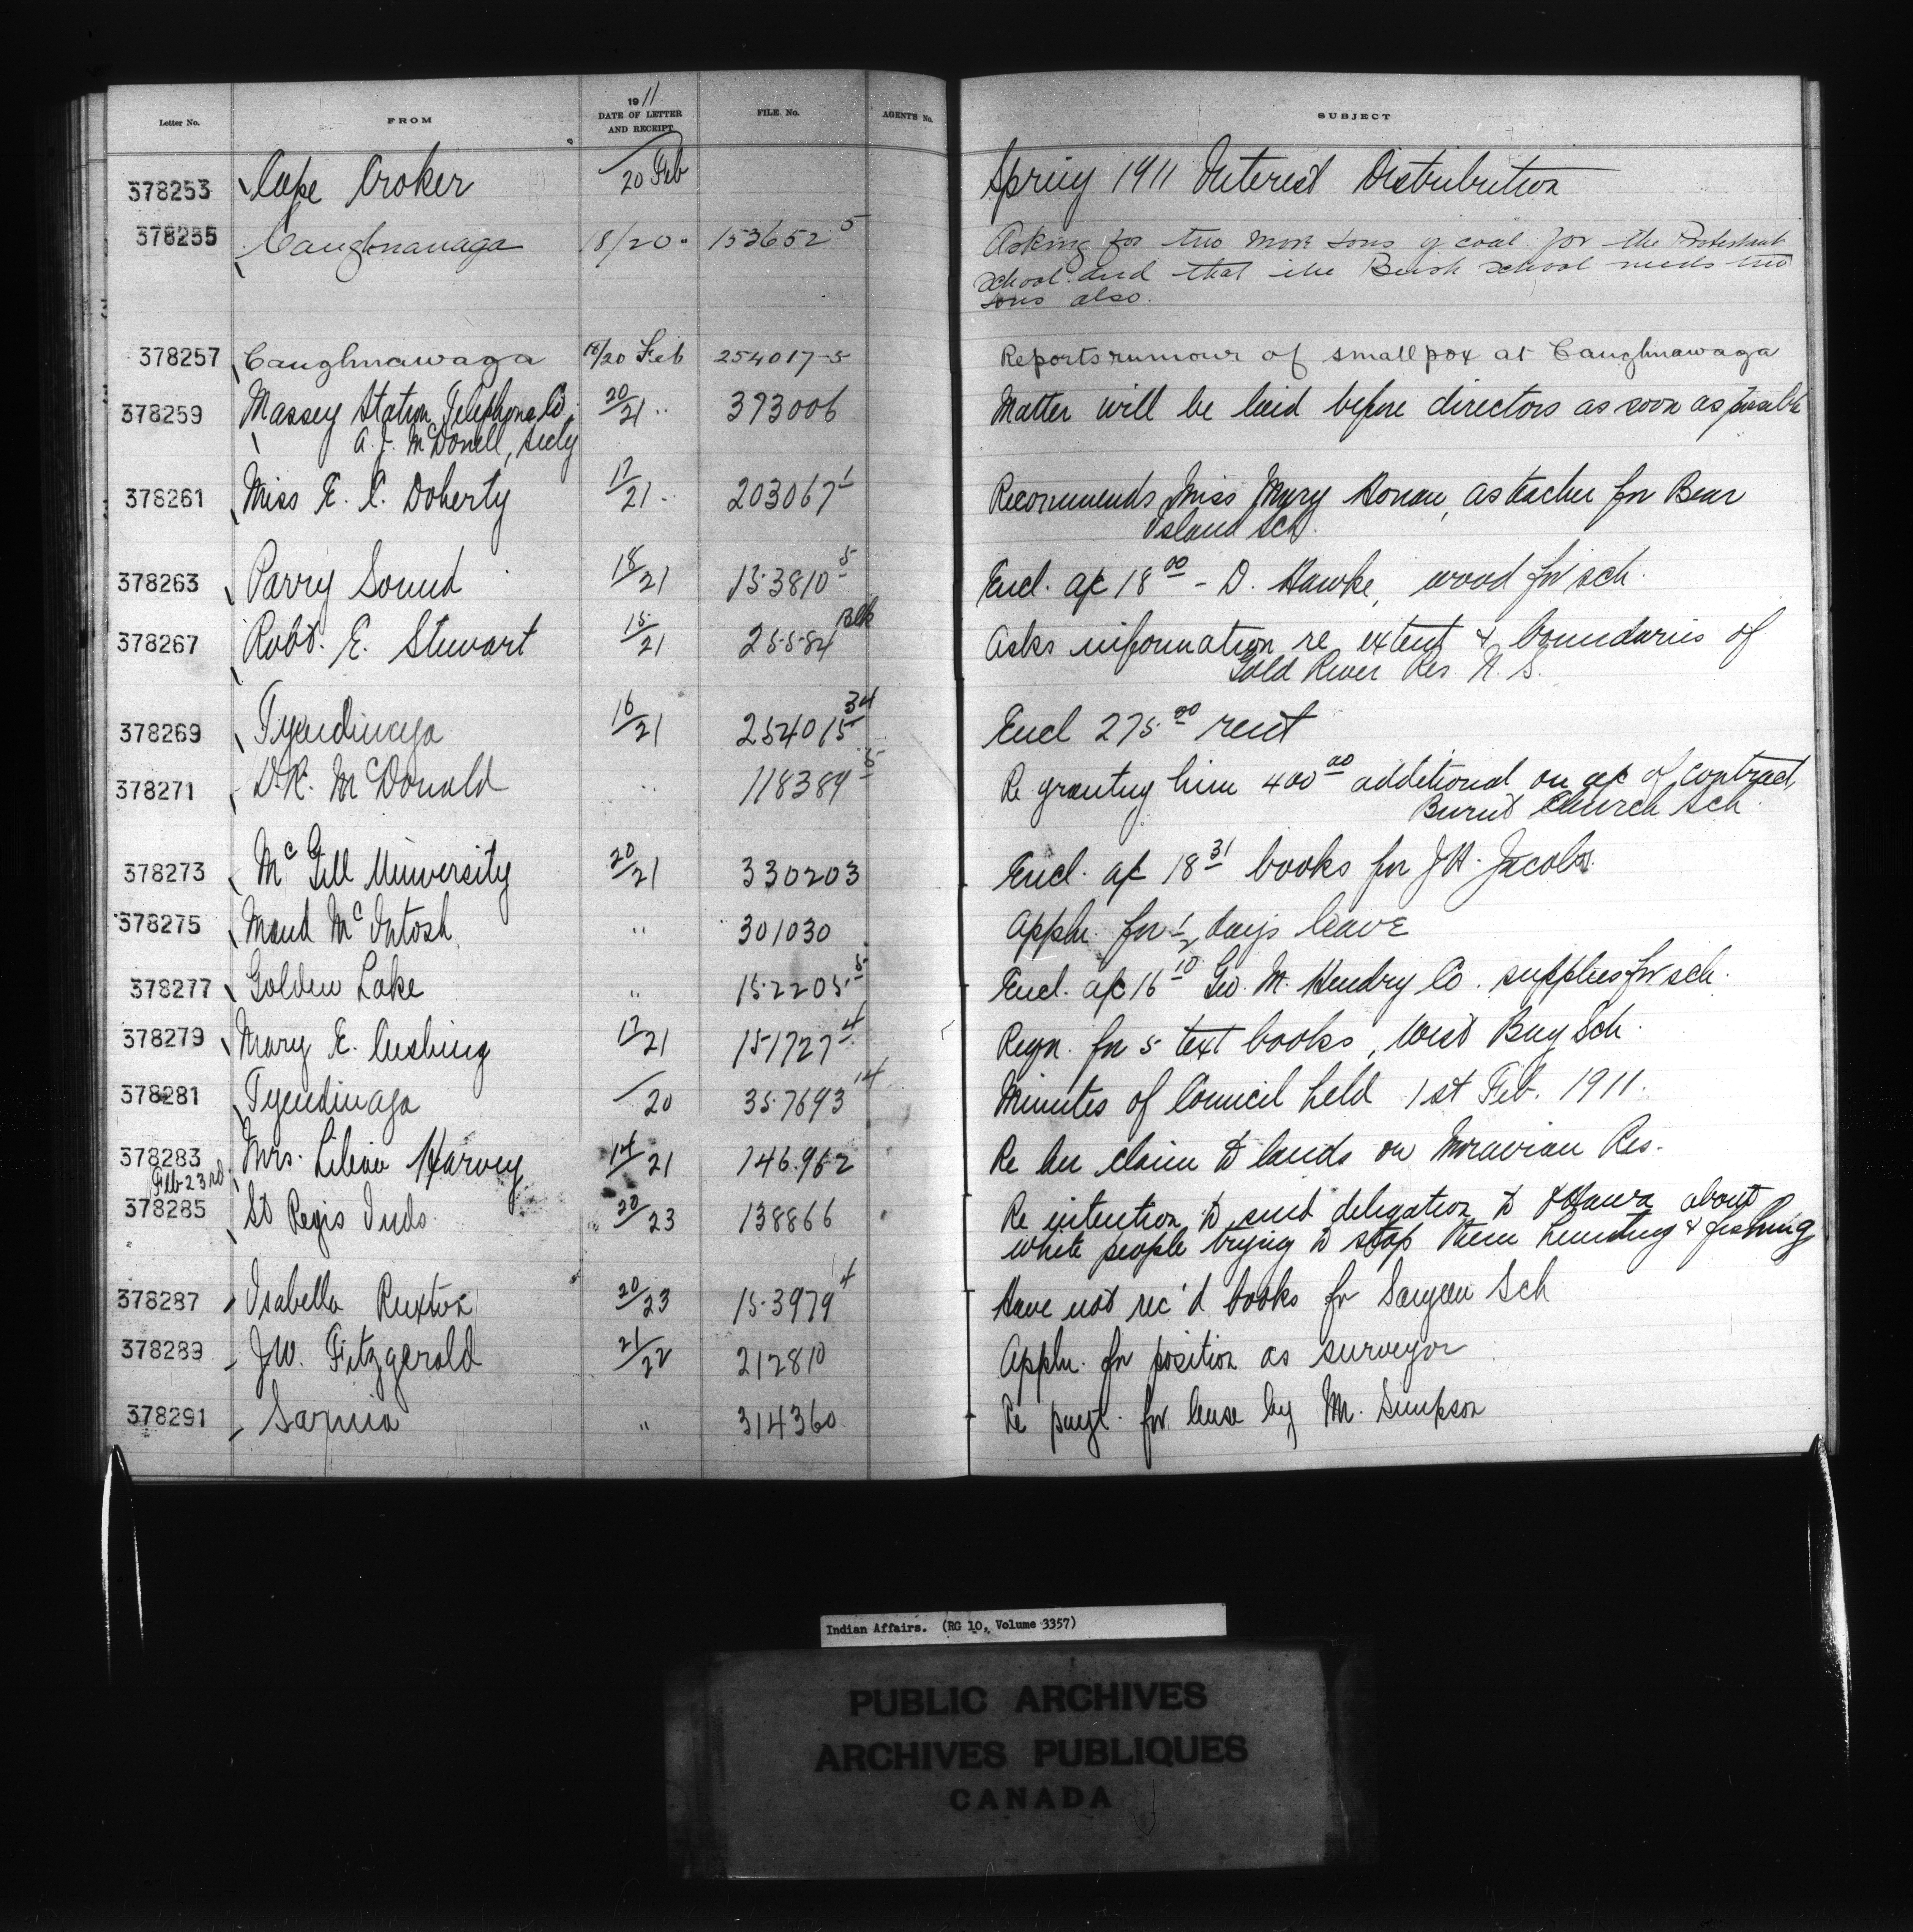 Letter No. FROM 1911 DATE OF LETTER AND RECEIPT FILE No. AGENTS No. SUBJECT
378253 Cape Croker 20 Feb Spring 1911 Interest Distribution
378255 Caughnawaga 18/20 " 153652 5 Asking for two more tons of coal for the Protestant
school and that the Bush school needs two
tons also.
378257 Caughnawaga 18/20 Feb 254017-5 Reports rumour of small pox at Caughnawaga
378259 Massey Station Telephone Co, 20/21 " 373006 Matter will be laid before directors as soon as possible
A. J. McDonell, secty
378261 Miss E. C. Doherty 17/21 " 203067 1 Recommends Miss Mary Honan, as teacher for Bear
Island Sch.
378263 Parry Sound 18/21 153810 5 Encl. a/c 18 00 - D. Hawke, wood for sch.
378267 Robt. E. Stewart 15/21 25584 Blk Asks information re extent & boundaries of
Gold River Res. N. S.
378269 Tyendinaga 16/21 254015 34 Encl 275 00 rent
378271 D. R. McDonald " 118389 5 Re granting him 400 00 additional on a/c of contract,
Burnt Church Sch
378273 McGill University 20/21 330203 Encl. a/c 18 31 books for J H. Jacobs.
378275 Maud McIntosh " 301030 Appln. for 1/2 days leave
378277 Golden Lake " 152205 5 Encl. a/c 16 10 Geo. M. Hendry Co. supplies for sch.
378279 Mary E. Cushing 17/21 151727 4 Reqn. for 5 text books, West Bay Sch.
378281 Tyendinaga /20 357693 14 Minutes of Council held 1st Feb. 1911.
378283 Mrs. Lilian Harvey 14/21 146.962 Re her claim to lands on Moravian Res.
Feb 23rd
378285 St Regis Inds. 20/23 138866 Re intention to send delegation to Ottawa about
white people trying to stop them hunting & fishing
378287 Isabella Ruxton 20/23 153979 4 Have not rec'd books for Saugeen Sch
378289 J W. Fitzgerald 21/22 212810 Appln. for position as surveyor
378291 Sarnia " 314360 Re payt. for lease by M. Simpson
Indian Affairs. (RG 10, Volume 3357)
PUBLIC ARCHIVES
ARCHIVES PUBLIQUES
CANADA